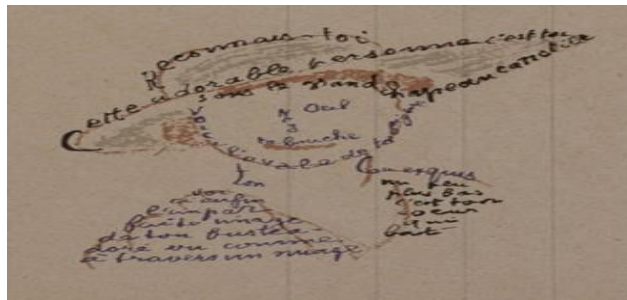 Reconnais-toi
Cette adorable personne c'est toi
Sous le grand chapeau canotier
Oeil
Nez
La bouche
Voici l'ovale de ta figure
Ton
Cou exquis
Voici
enfin
l'impar
faite image
de ton buste a
doré vu comme
à travers un nuage
un peu
plus bas
c'est ton
coeur
qui
bat